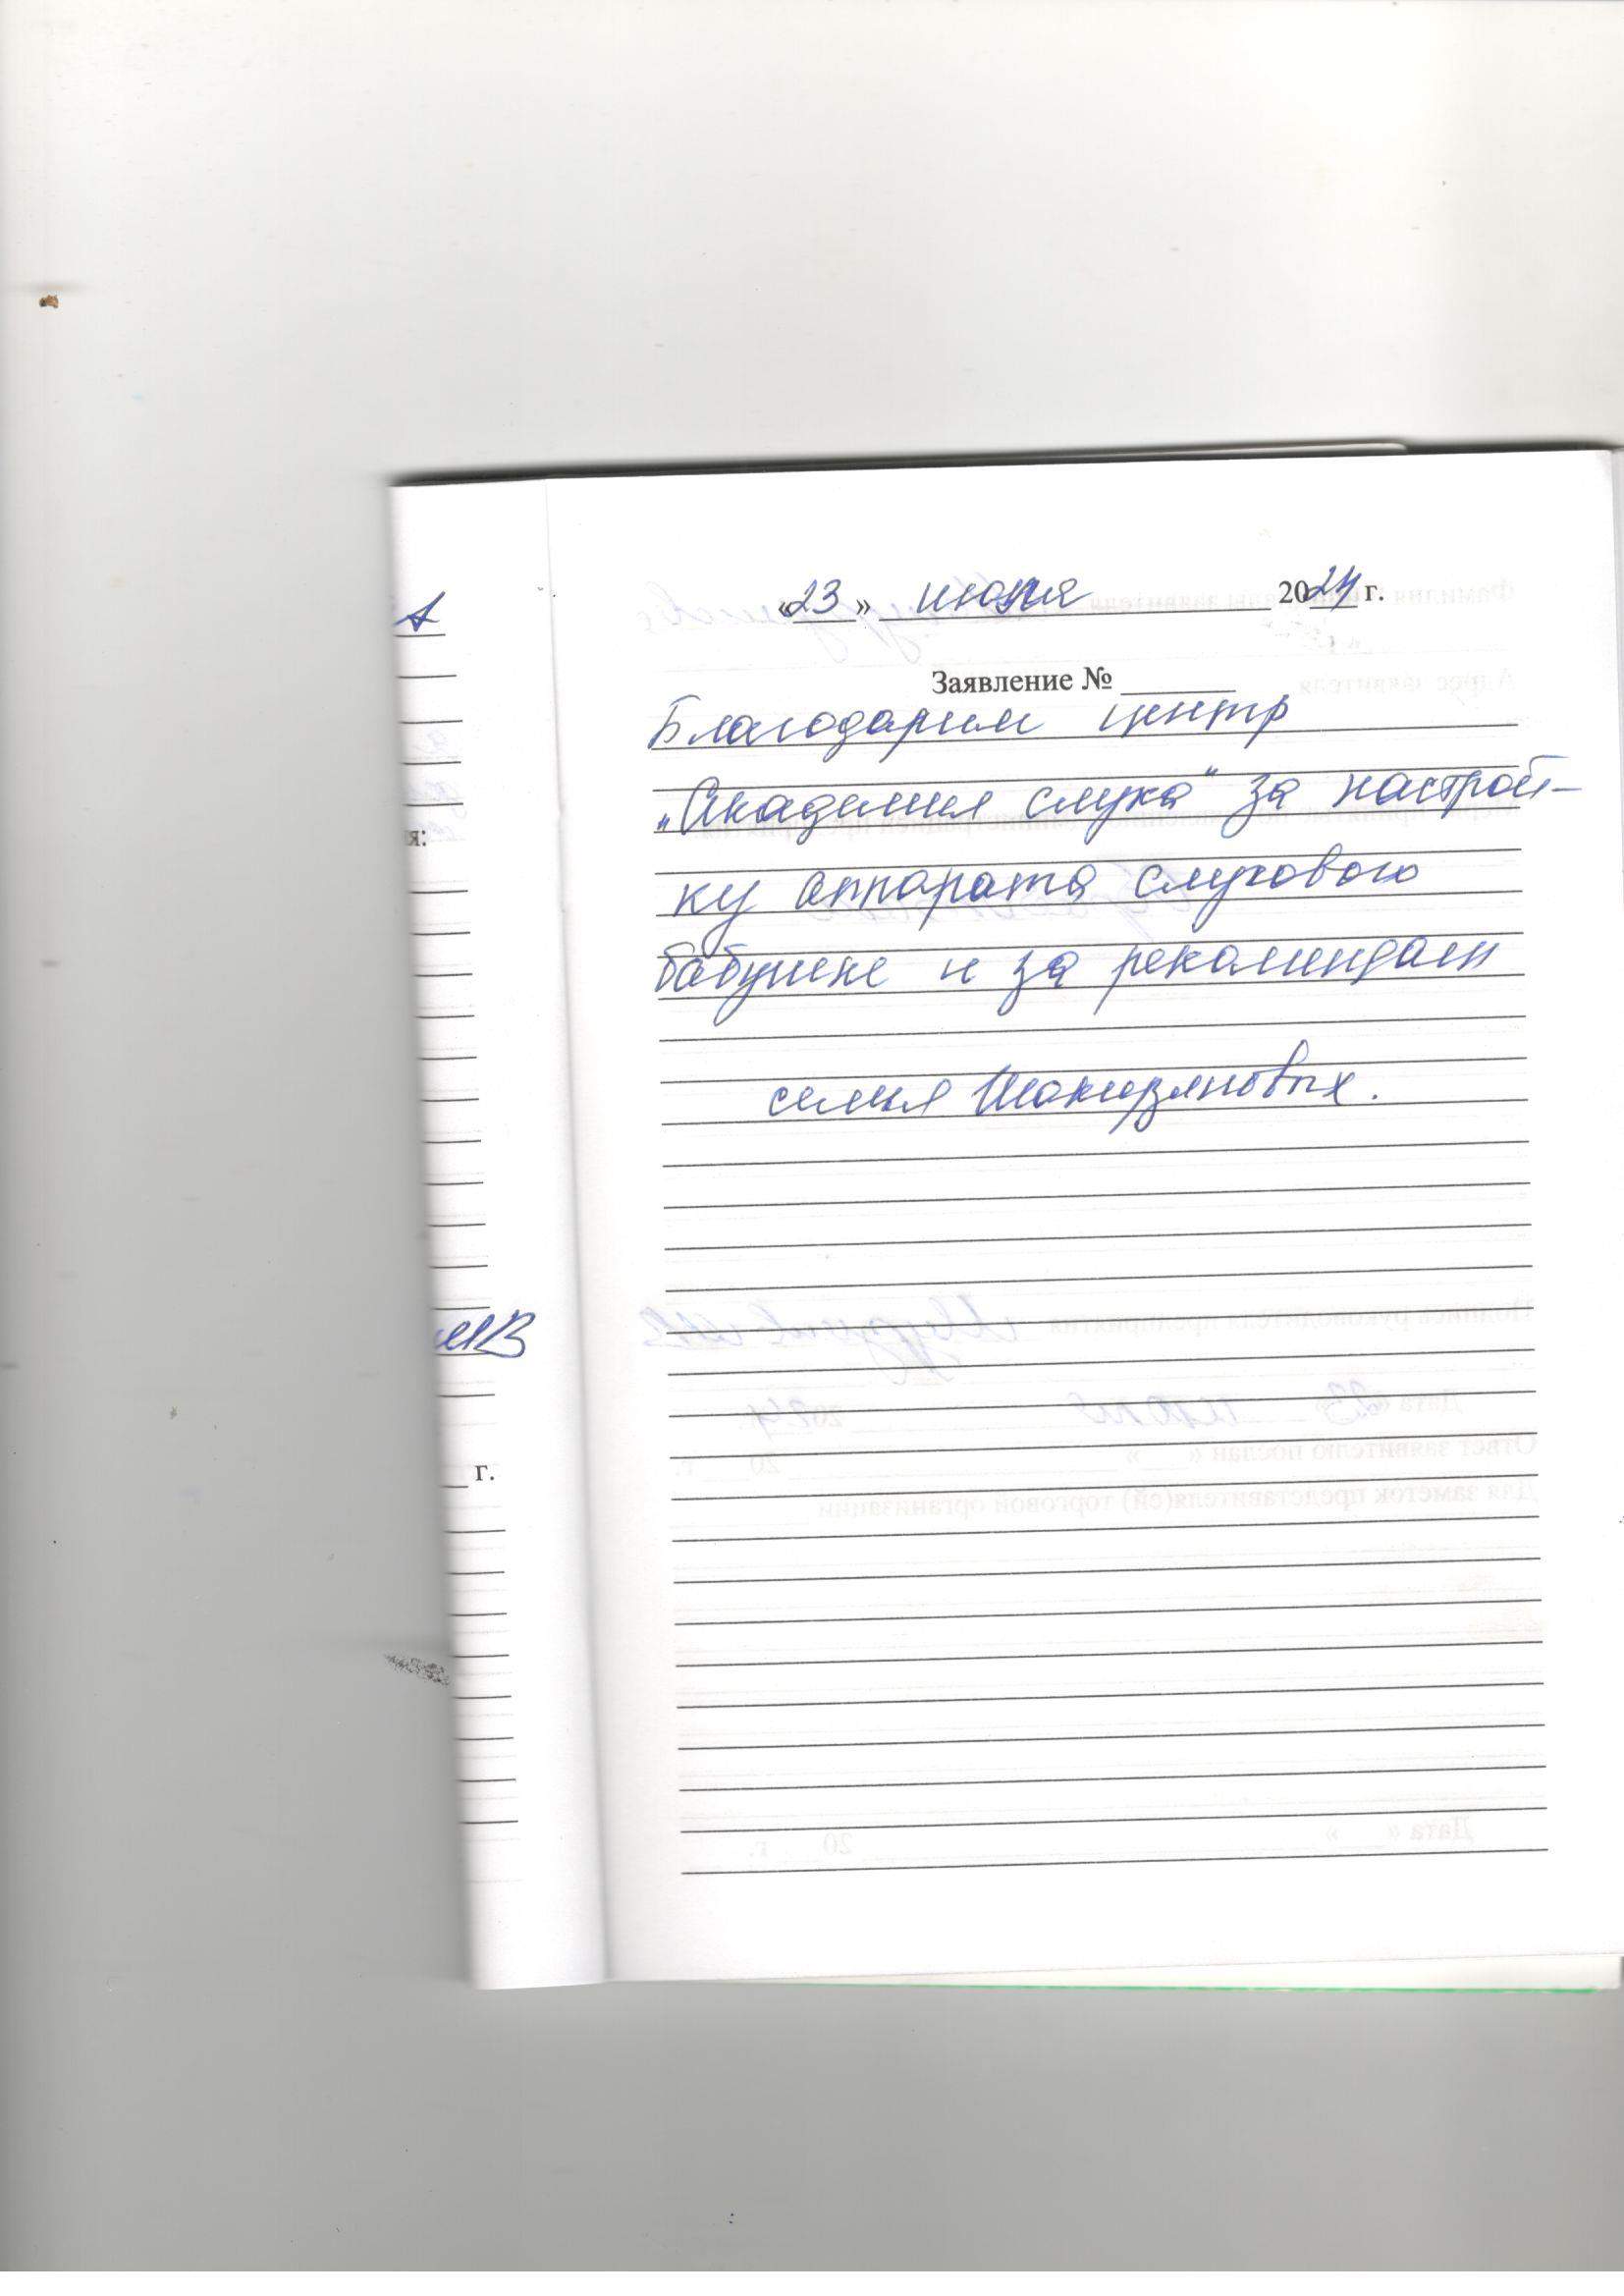 «23» июля 2024 г.
Заявление № ______
Благодарим центр
„Академия слуха" за настрой-
ку аппарата слухового
бабушке и за рекомендаци
семья Шакирзяновых.
я:
г.